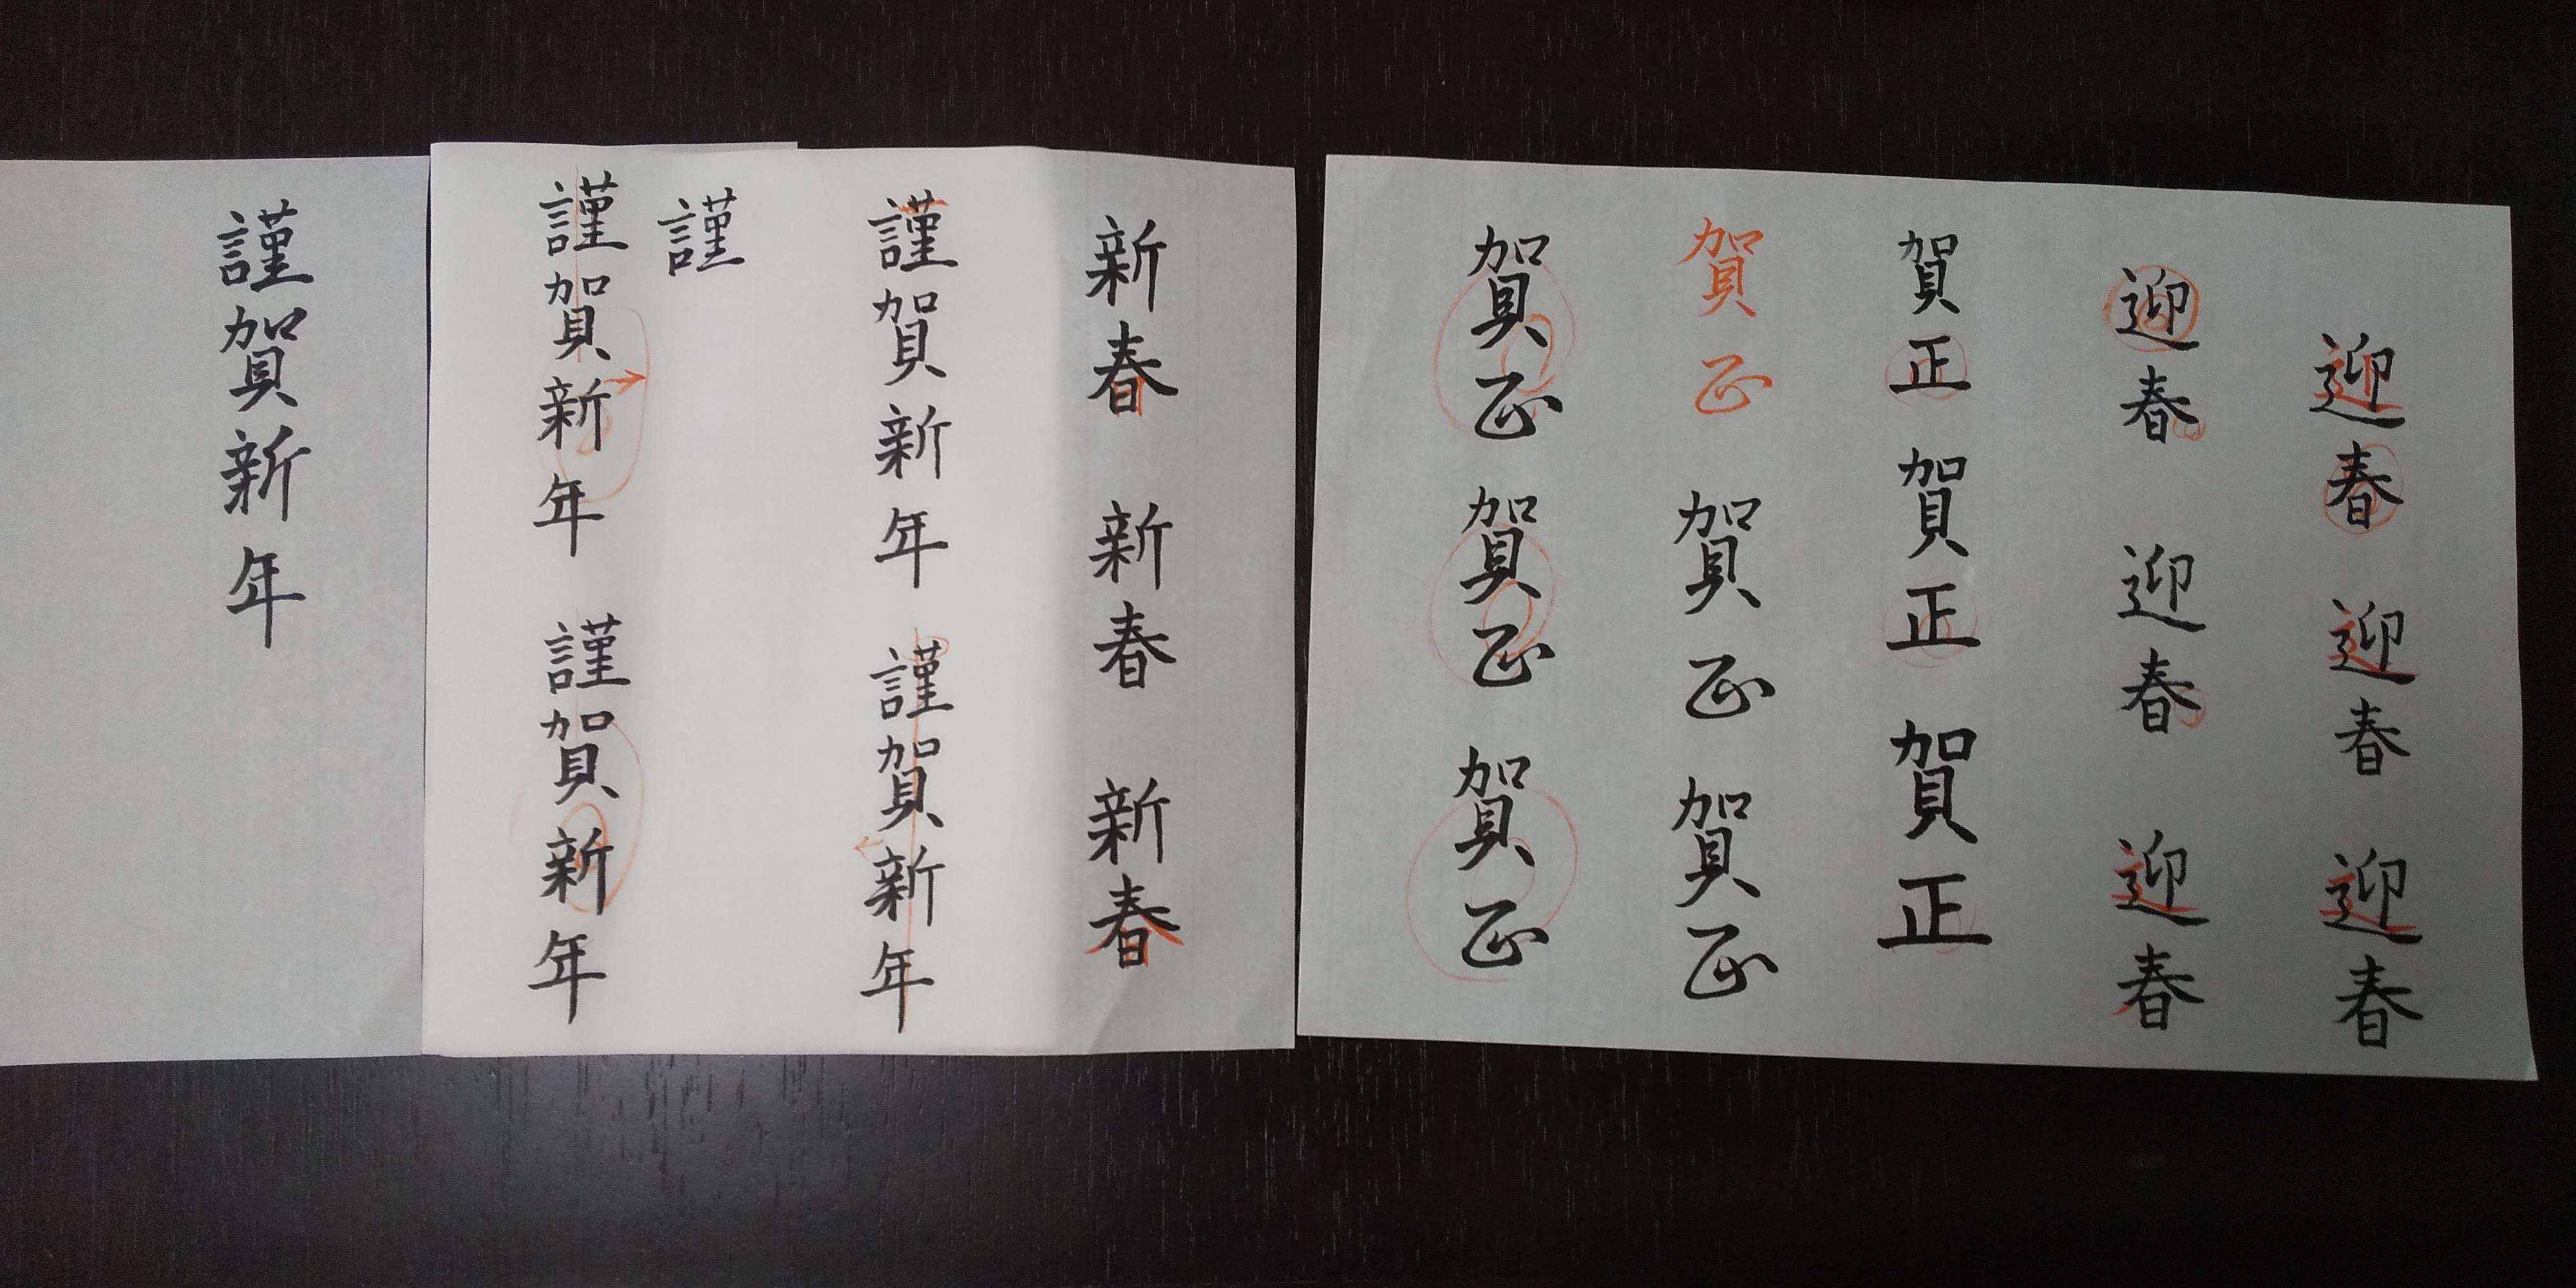 迎春 迎春 迎春
迎春 迎春 迎春
賀正 賀正 賀正
賀正 賀正 賀正
賀正 賀正 賀正
新春 新春 新春
謹賀新年 謹賀新年
謹
謹賀新年 謹賀新年
謹賀新年